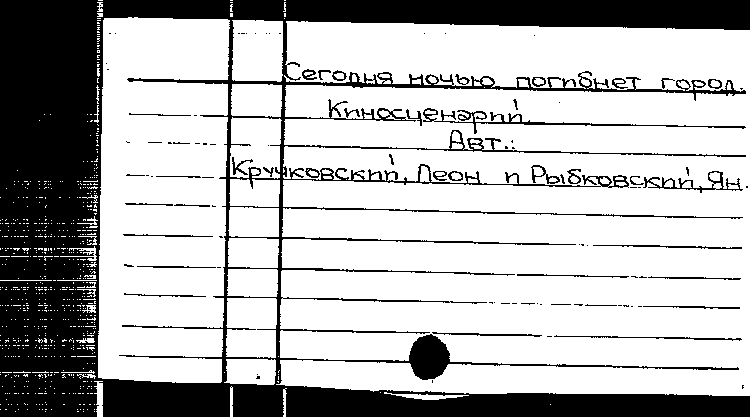 Сегодня ночью погибнет город.
Киносценарий
Авт.:
Кручковский, Леон и Рыбковский, Ян.